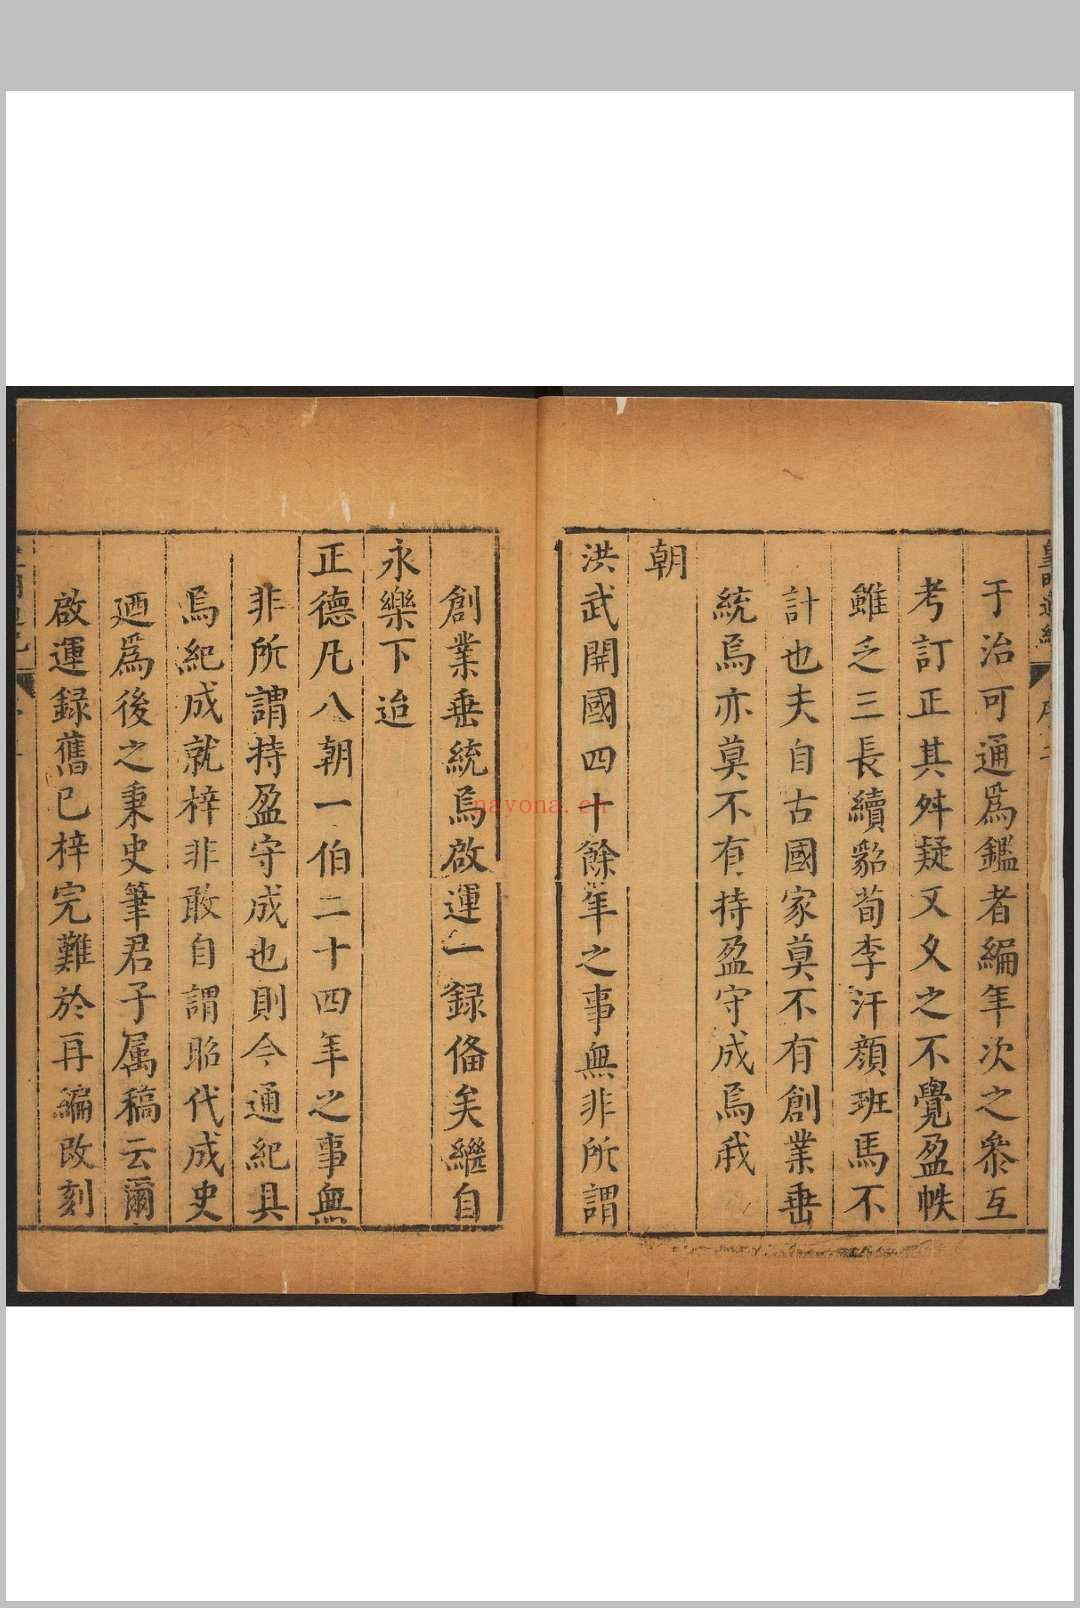 于治可通爲鑑者編年次之叅互
考訂正其舛疑又久之不覺盈帙
雖乏三長續貂荀李汗顔班馬不
計也夫自古國家莫不有創業垂
統焉亦莫不有持盈守成焉我
朝
洪武開國四十餘年之事無非所謂
創業垂統焉啟運一録俻矣繼自
永樂下迨
正德凡八朝一伯二十四年之事無
非所謂持盈守成也則今通紀具
焉紀成就梓非敢自謂昭代成史
廼爲後之秉史筆君子属稿云爾
啟運録舊已梓完難於再編改刻
nayona.cn